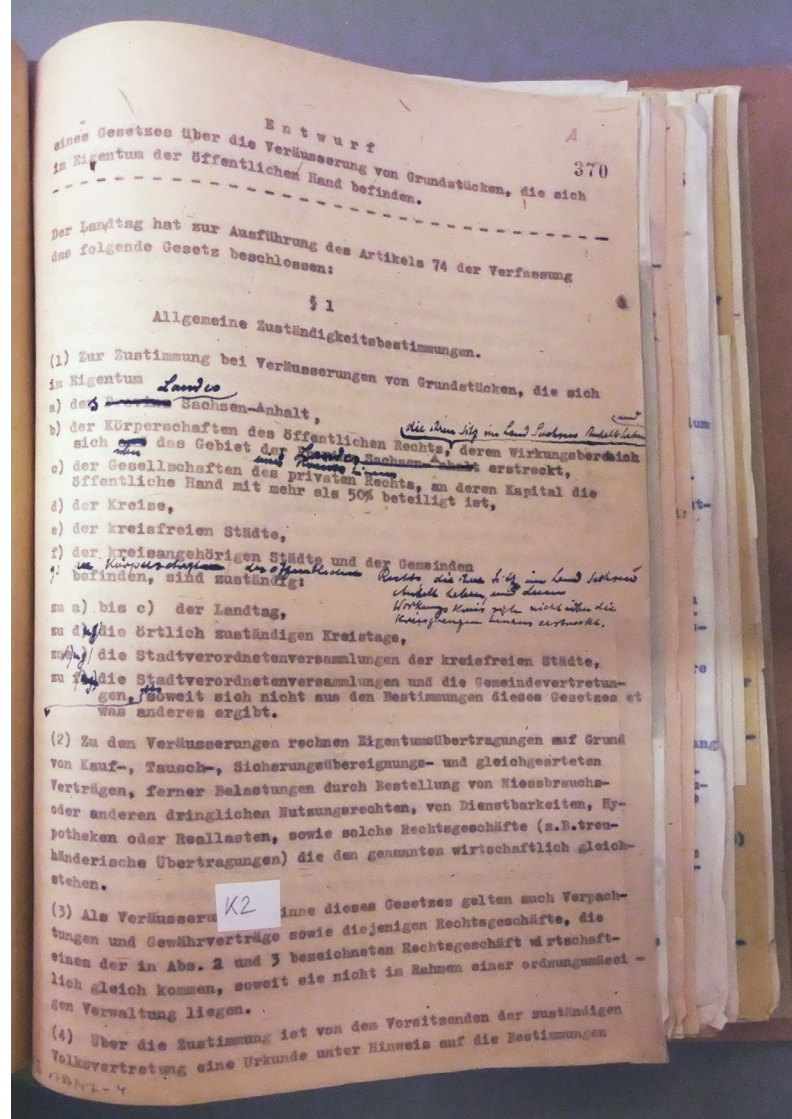 A
370
Entwurf
eines Gesetzes über die Veräusserung von Grundstücken, die sich
im Eigentum der öffentlichen Hand befinden.
Der Landtag hat zur Ausführung des Artikels 74 der Verfassung
das folgende Gesetz beschlossen:
§ 1
Allgemeine Zuständigkeitsbestimmungen.
(1) Zur Zustimmung bei Veräusserungen von Grundstücken, die sich
im Eigentum
Landes
a) des Provinz Sachsen-Anhalt,
und
die ihren Sitz im Land Sachsen Anhalt haben
b) der Körperschaften des öffentlichen Rechts, deren Wirkungsbereich
sich das Gebiet der Landes Sachsen-Anhalt erstreckt,
c) der Gesellschaften des privaten Rechts, an deren Kapital die
öffentliche Hand mit mehr als 50% beteiligt ist,
d) der Kreise,
e) der kreisfreien Städte,
f) der kreisangehörigen Städte und der Gemeinden
g) der Körperschaften des öffentlichen Rechts, die ihren Sitz im Land Sachsen
Anhalt haben, und deren
Wirkungskreis sich nicht über die
Kreisgrenzen hinaus erstreckt.
befinden, sind zuständig:
zu a) bis c) der Landtag,
zu d) die örtlich zuständigen Kreistage,
zu die Stadtverordnetenversammlungen der kreisfreien Städte,
zu die Stadtverordnetenversammlungen und die Gemeindevertretun-
gen, soweit sich nicht aus den Bestimmungen dieses Gesetzes et
was anderes ergibt.
(2) Zu den Veräusserungen rechnen Eigentumsübertragungen auf Grund
von Kauf-, Tausch-, Sicherungsübereignungs- und gleichgearteten
Verträgen, ferner Belastungen durch Bestellung von Niessbrauchs-
oder anderen dringlichen Nutzungsrechten, von Dienstbarkeiten, Hy-
potheken oder Reallasten, sowie solche Rechtsgeschäfte (z.B.treu-
händerische Übertragungen) die den genannten wirtschaftlich gleich-
stehen.
K2
(3) Als Veräusseru inne dieses Gesetzes gelten auch Verpach-
tungen und Gewährverträge sowie diejenigen Rechtsgeschäfte, die
einem der in Abs. 2 und 3 bezeichneten Rechtsgeschäft wirtschaft-
lich gleich kommen, soweit sie nicht im Rahmen einer ordnungsmässi-
gen Verwaltung liegen.
(4) Über die Zustimmung ist von dem Vorsitzenden der zuständigen
Volksvertretung eine Urkunde unter Hinweis auf die Bestimmungen